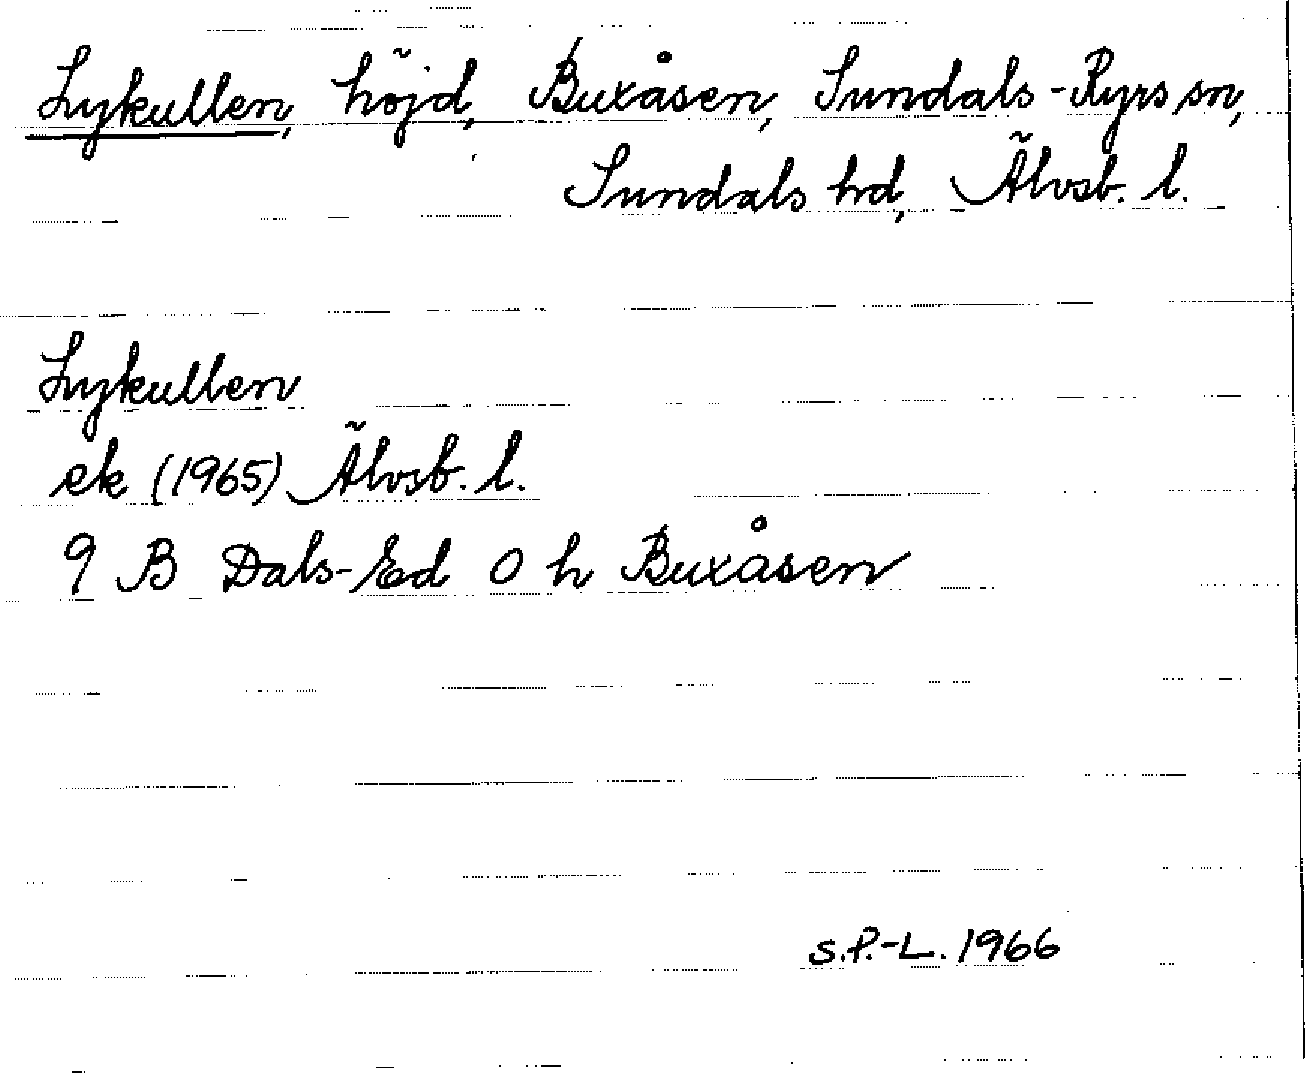 Lykullen, höjd, Buxåsen, Sundals-Ryrs sn,
Sundals hd, Älvsb. l.
Lykullen
ek (1965) Älvsb. l.
9 B Dals-Ed O h Buxåsen
S.P.-L. 1966